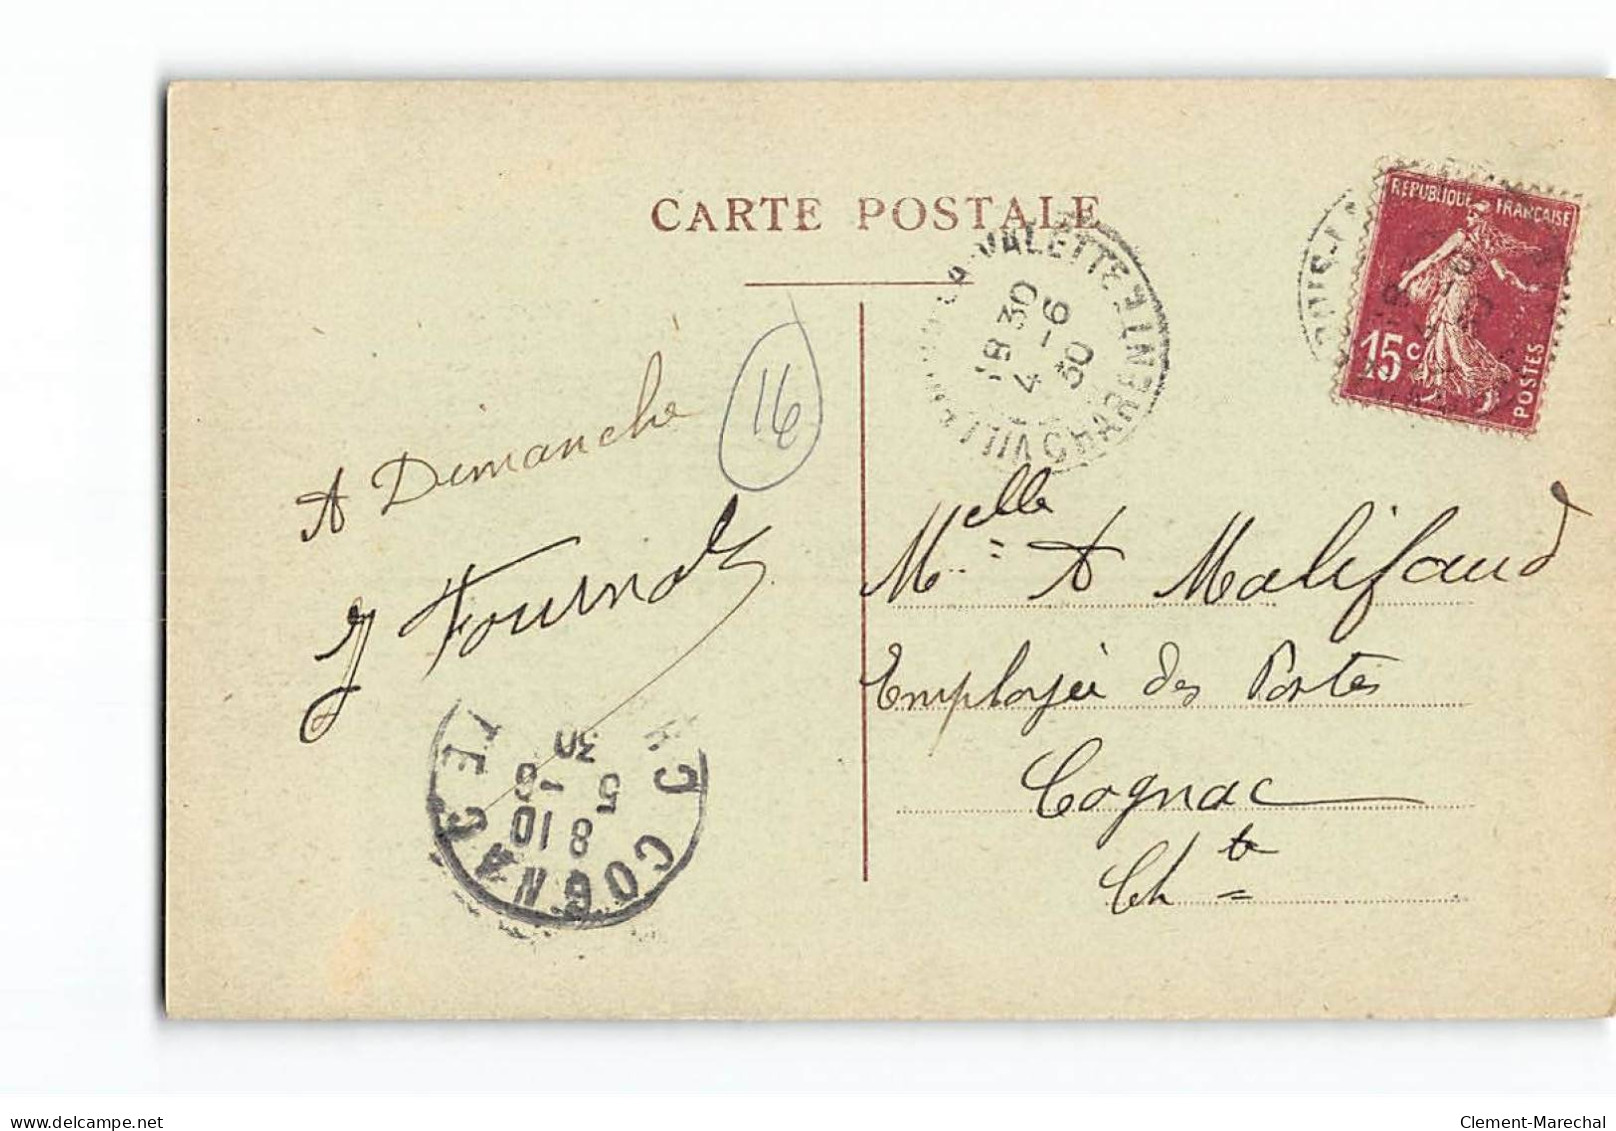 CARTE POSTALE
RÉPUBLIQUE FRANÇAISE
15c
POSTES
VALETTE
18 30
4 - 6
30
16
A Dimanche
Melle A Malifaud
Employée des Postes
Cognac
Chte
COGNAC
8 10
5 - 6
30
delcampe.net
Clement-Marechal